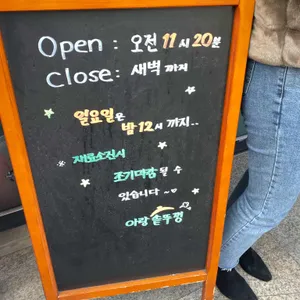 Open : 오전 11시 20분
Close : 새벽 까지
일요일은
밤 12시 까지..
※ 재료소진시
조기마감 될 수
있습니다~♡
아랑 솥뚜껑